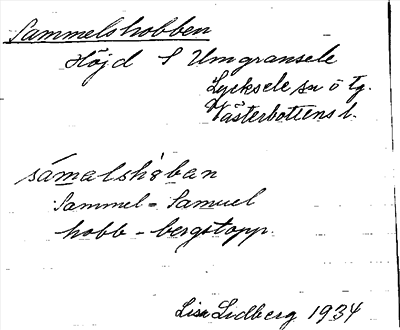 Sammelshobben
Höjd S Umgransele
Lycksele sn o tg.
Västerbottens l.
sámalshåban
Sammel = Samuel
hobb - bergstopp.
Lisa Lidberg 1934